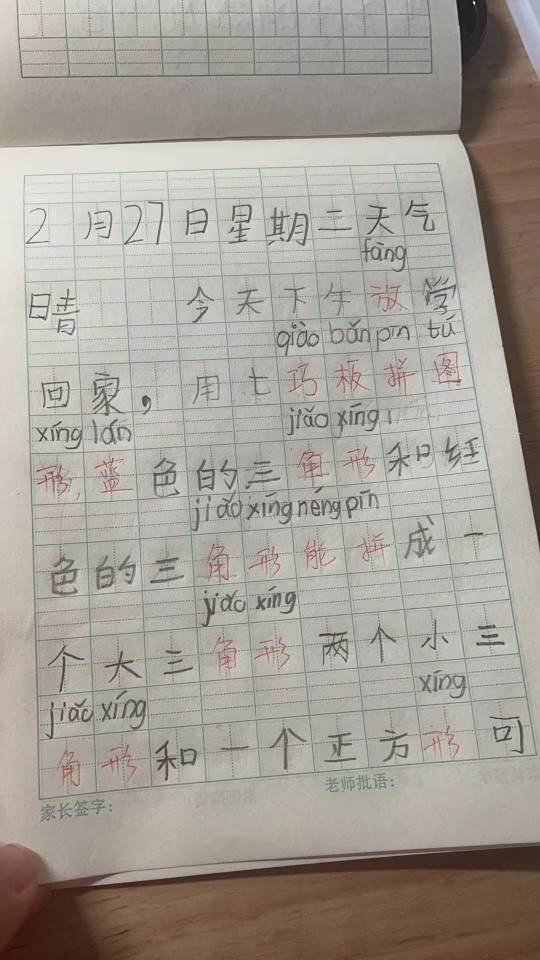 2月27日星期二天气
fāng
晴 今天下午放学
qiǎo bǎn pīn tú
回家，用七巧板拼图
xíng lán
jiǎo xíng
形，蓝色的三角形和红
jiǎo xíng néng pīn
色的三角形能拼成一
jiǎo xíng
个大三角形两个小三
jiǎo xíng
xíng
角形和一个正方形可
家长签字：
老师批语：